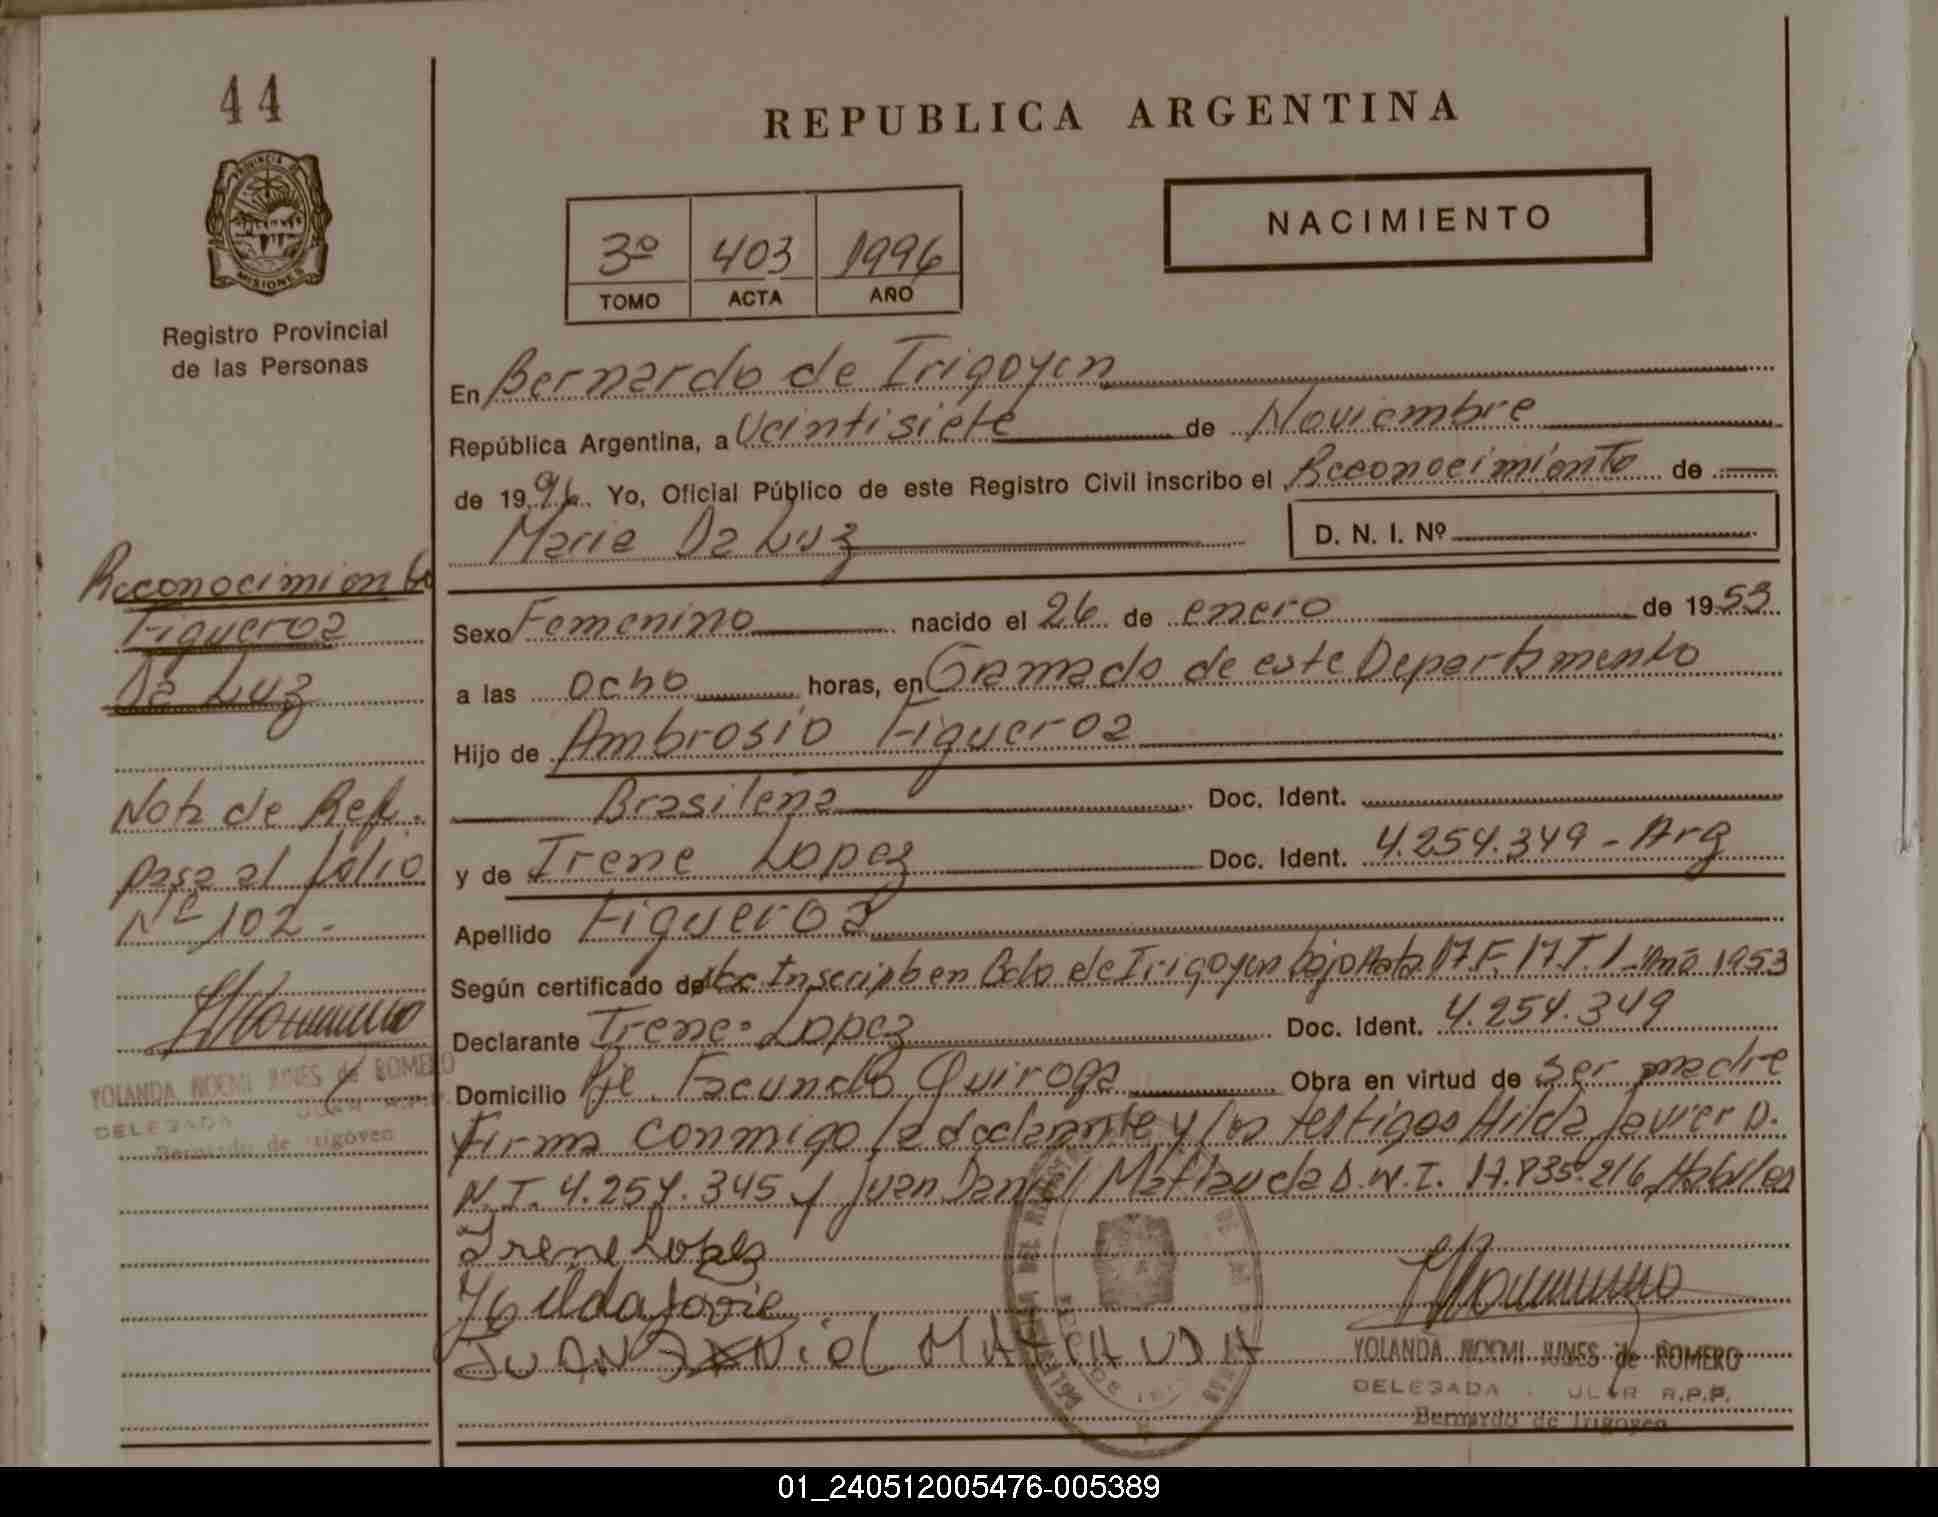 44
REPUBLICA ARGENTINA
PROVINCIA DE
MISIONES
Registro Provincial
de las Personas
3º 403 1996
TOMO ACTA AÑO
NACIMIENTO
En Bernardo de Irigoyen
República Argentina, a Veintisiete de Noviembre
de 1996. Yo, Oficial Público de este Registro Civil inscribo el Reconocimiento de
Maria Da Luz
D. N. I. Nº
Reconocimiento
Figueroa
Da Luz
Sexo Femenino nacido el 26 de enero de 1953
a las ocho horas, en Gramado de este Departamento
Hijo de Ambrosio Figueroa
Brasileña Doc. Ident.
y de Irene Lopez Doc. Ident. 4.254.349 - Arg
Nota de Ref.
pasa al folio
Nº 102.-
Apellido Figueroa
Según certificado de Inscrip en Bdo de Irigoyen bajo Acta 17 F. 17 T. 1 Año 1953
Declarante Irene Lopez Doc. Ident. 4.254.349
Domicilio Pje. Facundo Quiroga Obra en virtud de ser madre
Firma conmigo la declarante y los testigos Hilda Javier D.
N.I. 4.254.345 y Juan Daniel D.N.I. 17.835.216 Habiles
YOLANDA NOEMI JUNES de ROMERO
DELEGADA R.P.P.
Bernardo de Irigoyen
Irene Lopez
Hilda
JUAN
YOLANDA NOEMI JUNES de ROMERO
DELEGADA R.P.P.
Bernardo de Irigoyen
01_240512005476-005389